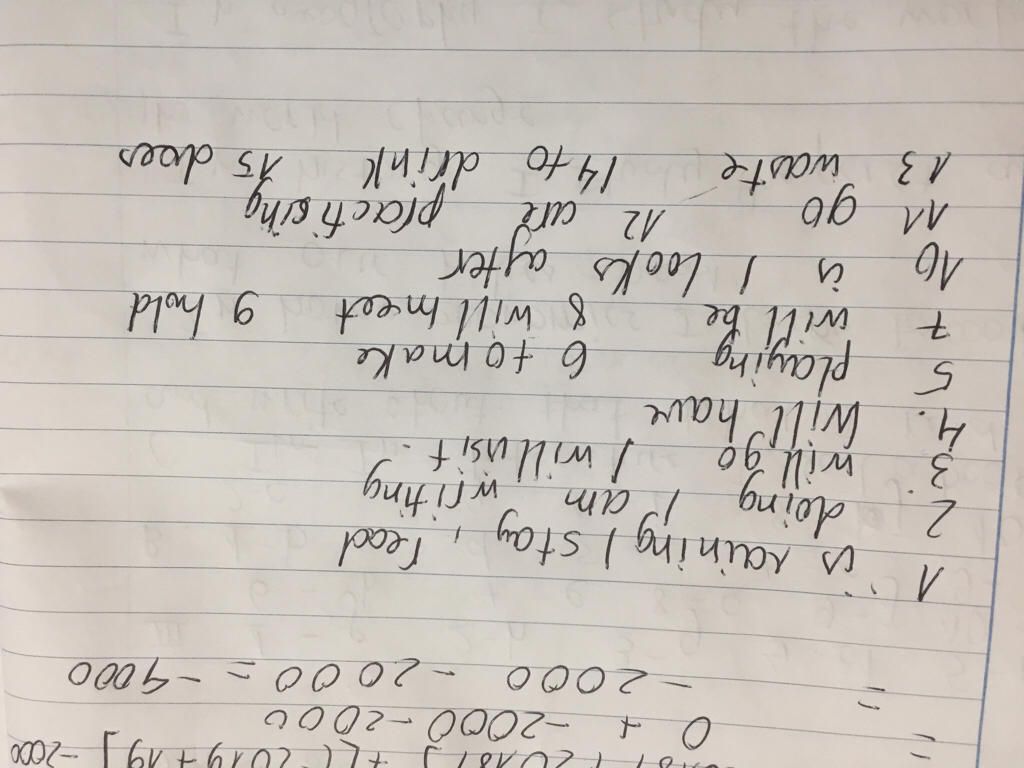 + [(2019 + 19] - 2000
= 0 + -2000 - 2000
= - 2000 - 2000 = - 4000
1. is raining / stay, read
2. doing / am writing
3. will go / will visit.
4. Will have
5 playing 6 to make
7 will be 8 will meet 9 hold
10 is / looks after
11 go 12 are practising
13 waste 14 to drink 15 does